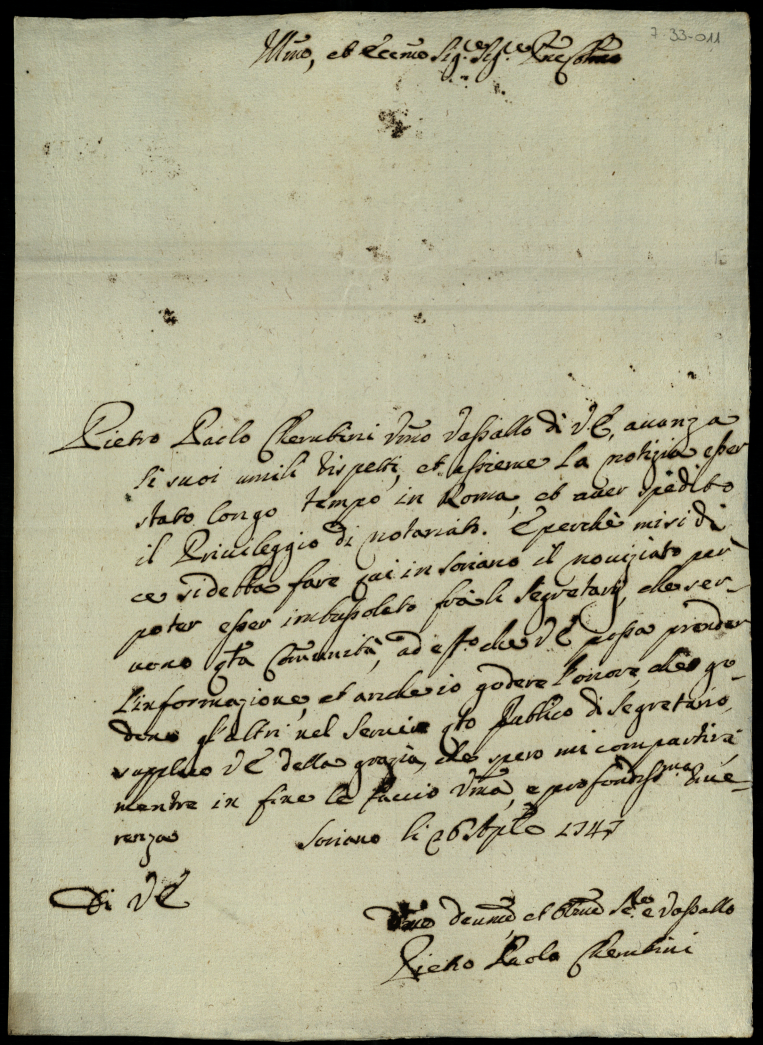 7-33-011
Ill.mo, et Ecc.mo Sig.re Sig.re P.rone Col.mo
Pietro Paolo Cherubini Um.mo Vassallo di V.E. avanza
li suoi umili rispetti, et assieme la notizia esser
stato longo tempo in Roma, et aver spedito
il Privileggio di notariato. E perchè mi si di
ce si debba fare qui in Soriano il noviziato per
poter esser imbussolato frà li Segretarij, che ser-
vono q.ta Comunità, ad effetto che V.E. possa prender
l'informazione, et anche io godere l'onore, che go-
dono gl'altri nel servire q.to Publico di Segretario,
supplico V.E. della grazia, che spero mi compartirà,
mentre in fine le faccio Um.ma, e profondiss.ma rive-
renza Soriano li 26 Ap.le 1747
Di V.E.
Um.mo Dev.mo et Obl.mo Se.re e Vassallo
Pietro Paolo Cherubini